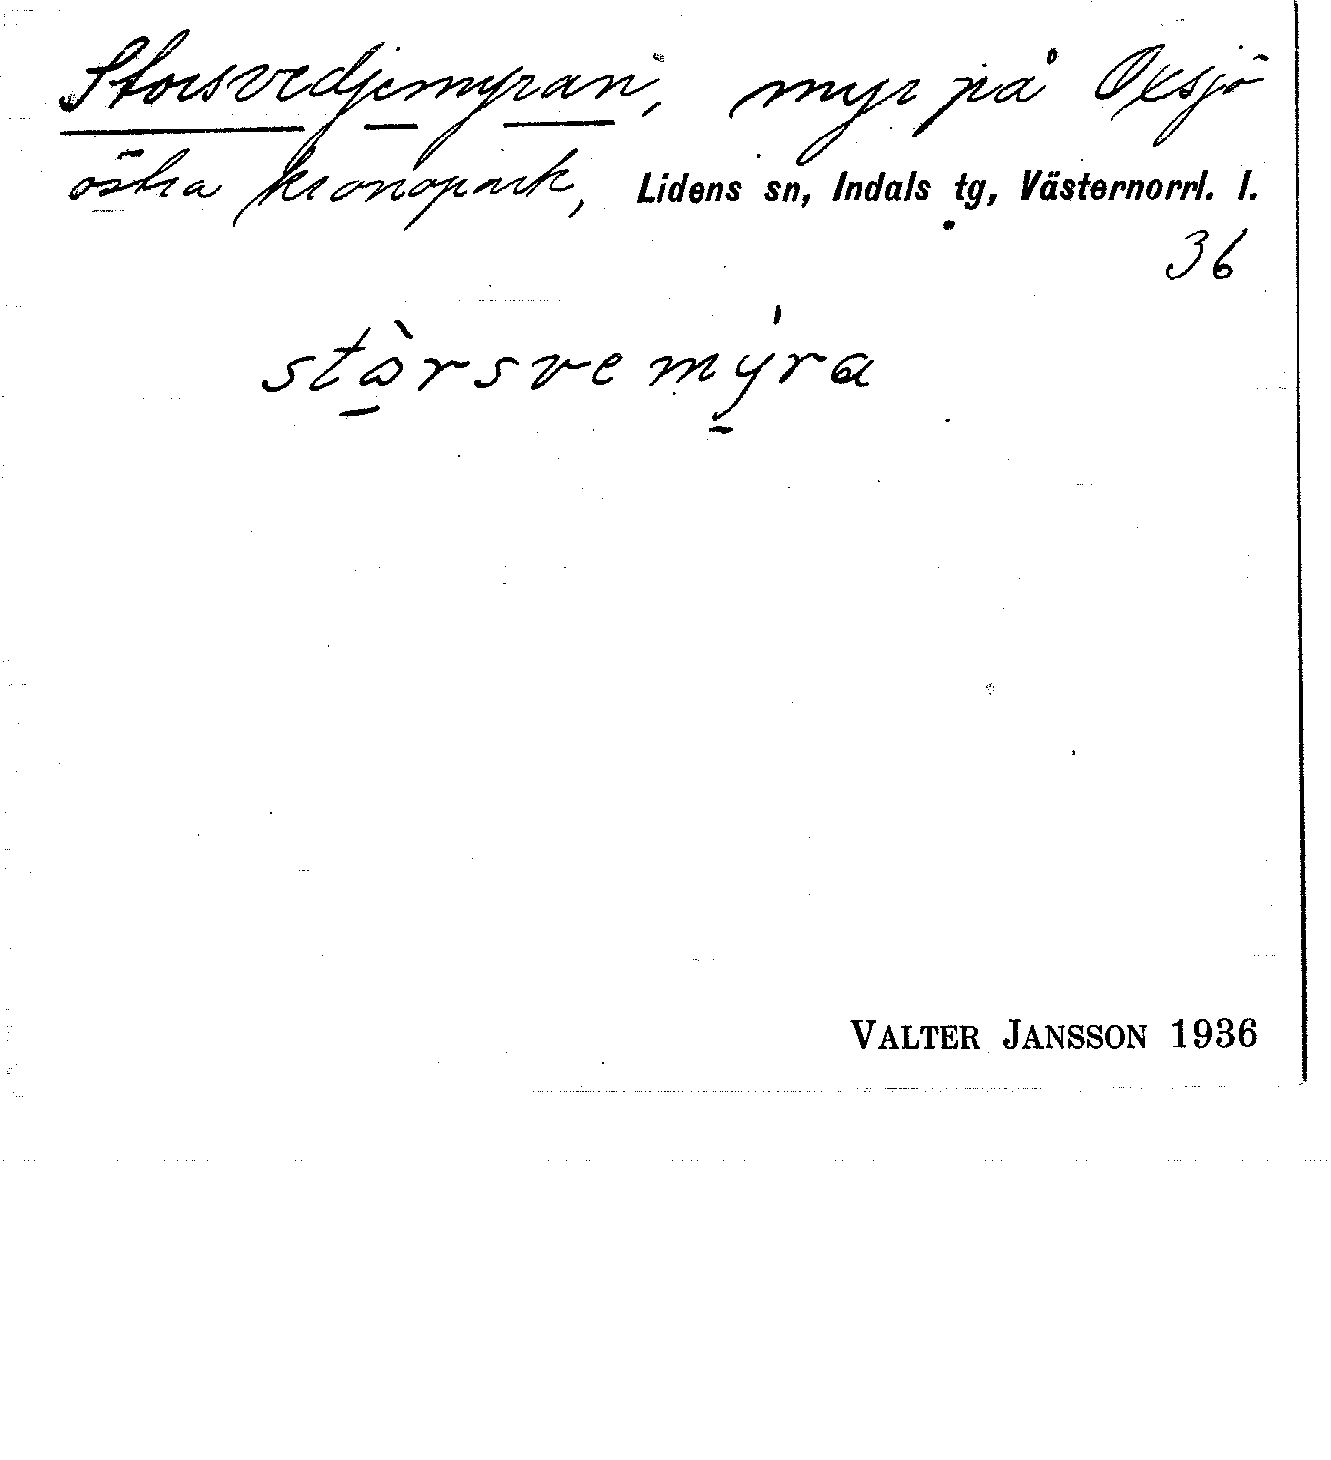 Storsvedjemyran, myr på Oxsjö
östra kronopark, Lidens sn, Indals tg, Västernorrl. l.
36
stòrsvemýra
VALTER JANSSON 1936